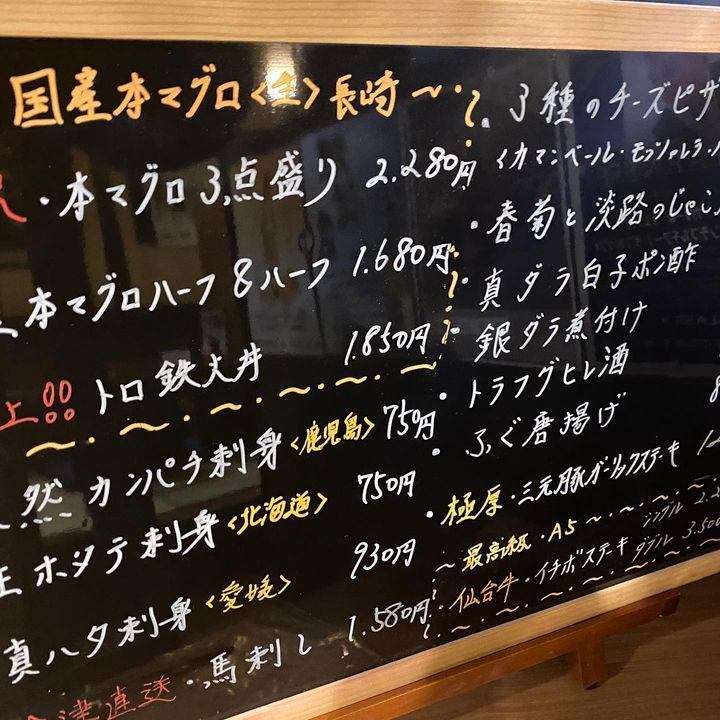 国産本マグロ<生>長崎
・本マグロ3点盛り 2,280円
本マグロハーフ&ハーフ 1,680円
上品 トロ鉄火丼 1,850円
然 カンパチ刺身<鹿児島> 750円
生ホタテ刺身<北海道> 750円
真ハタ刺身<愛媛> 930円
直送・馬刺し 1,580円
・3種のチーズピザ
カマンベール・モッツァレラ・
・春菊と淡路のじゃこ
・真ダラ白子ポン酢
・銀ダラ煮付け
・トラフグヒレ酒
・ふぐ唐揚げ
・極厚・三元豚ガーリックステーキ
～最高級・A5～
・仙台牛・イチボステーキ シングル
ダブル 3,50